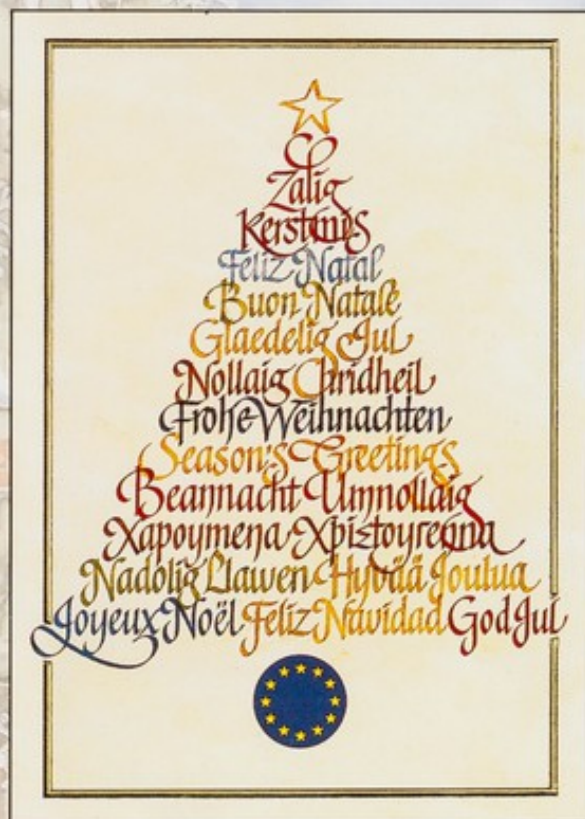 Zalig
Kerstmis
Feliz Natal
Buon Natale
Glaedelig Jul
Nollaig Chridheil
Frohe Weihnachten
Season's Greetings
Beannacht Umnollaig
Χαρουμενα Χριστουγεννα
Nadolig Llawen Hyvää Joulua
Joyeux Noël Feliz Navidad God Jul